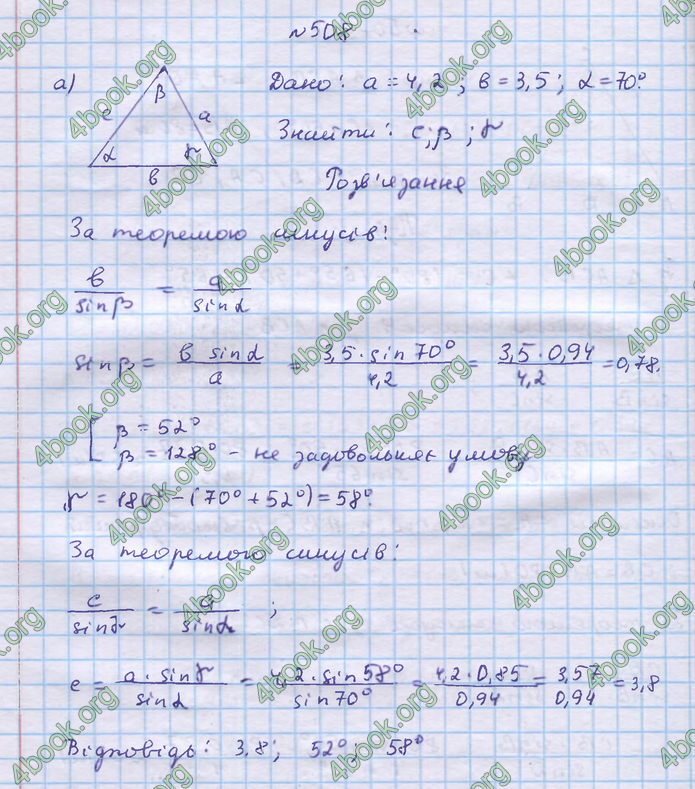 №508
а)
Дано: a = 4,2; в = 3,5; α = 70°.
β
c
a
α
γ
в
Знайти: c; β; γ
Розв'язання
За теоремою синусів:
в/sinβ = a/sinα
sinβ = в sinα/a = 3,5·sin70°/4,2 = 3,5·0,94/4,2 = 0,78.
[ β = 52°
β = 128° – не задовольняє умову
γ = 180° – (70° + 52°) = 58°.
За теоремою синусів:
c/sinγ = a/sinα ;
c = a·sinγ/sinα = 4,2·sin58°/sin70° = 4,2·0,85/0,94 = 3,57/0,94 = 3,8
Відповідь: 3,8; 52°; 58°
4book.org